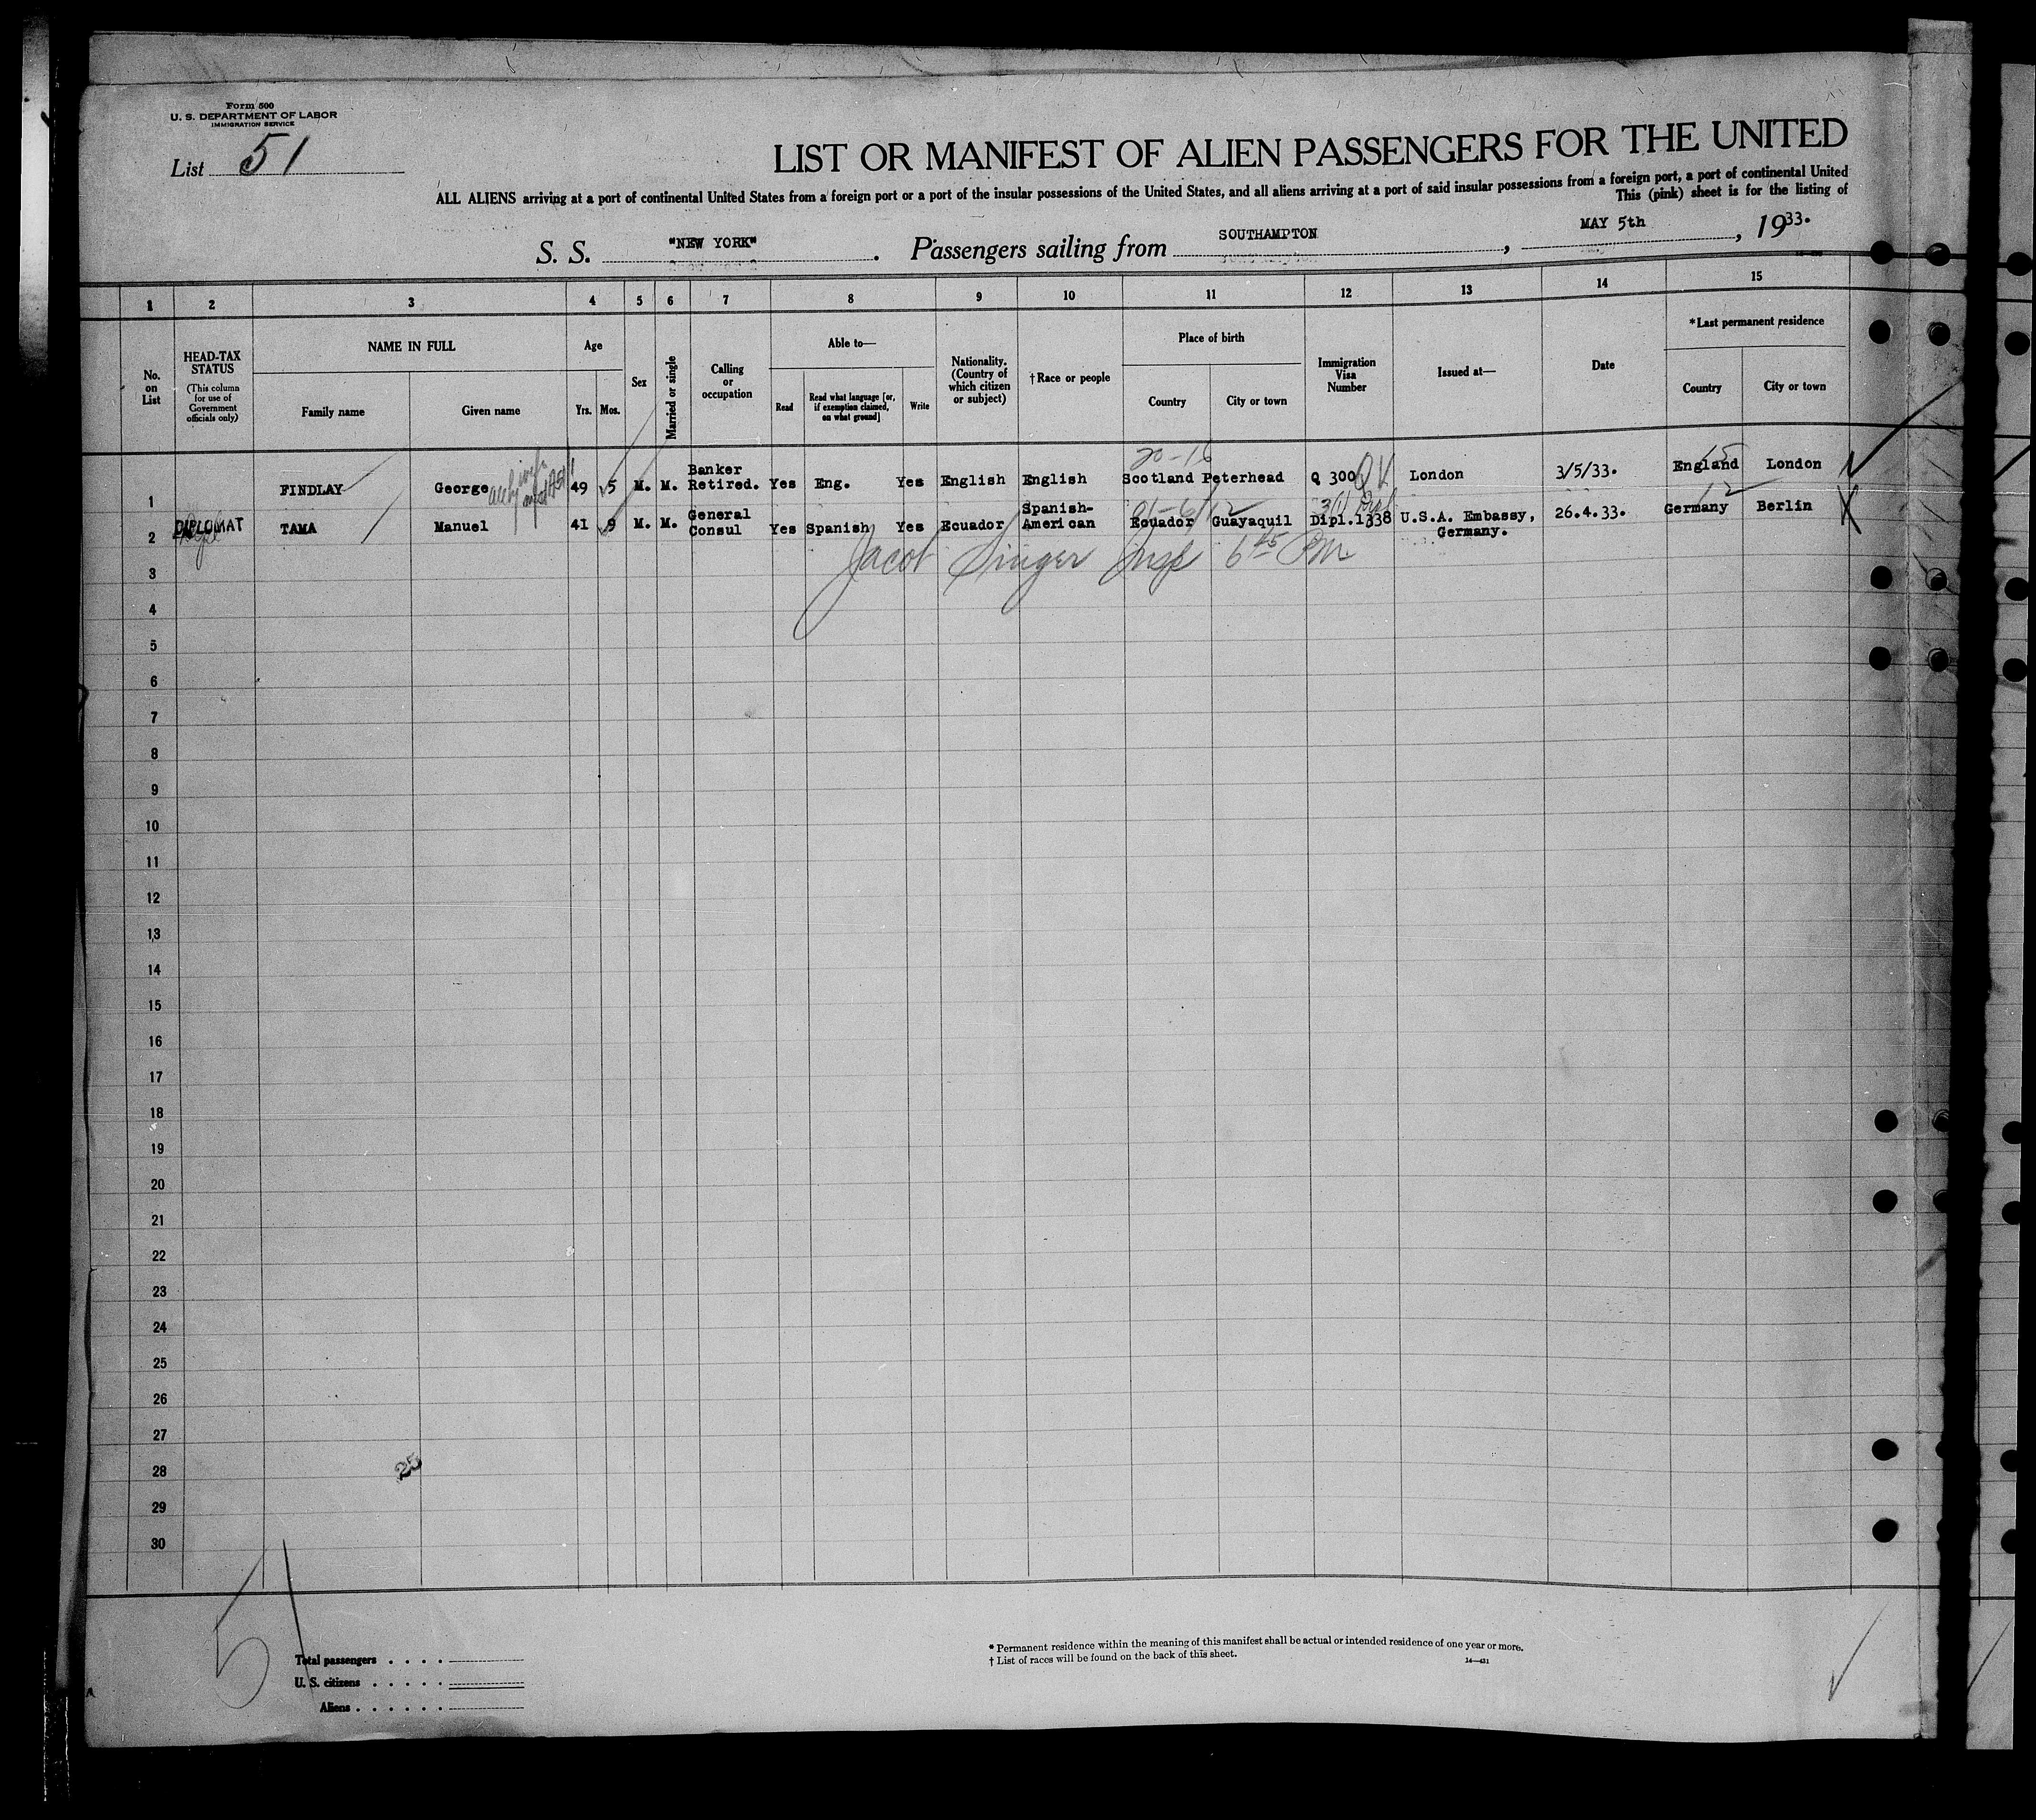 Form 500
U. S. DEPARTMENT OF LABOR
IMMIGRATION SERVICE
List 51
LIST OR MANIFEST OF ALIEN PASSENGERS FOR THE UNITED
ALL ALIENS arriving at a port of continental United States from a foreign port or a port of the insular possessions of the United States, and all aliens arriving at a port of said insular possessions from a foreign port, a port of continental United
This (pink) sheet is for the listing of
S. S. "NEW YORK". Passengers sailing from SOUTHAMPTON, MAY 5th, 1933.
1 2 3 4 5 6 7 8 9 10 11 12 13 14 15
No. on List
HEAD-TAX STATUS (This column for use of Government officials only)
NAME IN FULL
Family name
Given name
Age
Yrs. Mos.
Sex
Married or single
Calling or occupation
Able to—
Read
Read what language [or, if exemption claimed, on what ground]
Write
Nationality. (Country of which citizen or subject)
†Race or people
Place of birth
Country
City or town
Immigration Visa Number
Issued at—
Date
*Last permanent residence
Country
City or town
20-16
15
1 FINDLAY George 49 5 M. M. Banker Retired. Yes Eng. Yes English English Scotland Peterhead Q 300 QV London 3/5/33. England London
12
2 DIPLOMAT TAMA Manuel 41 9 M. M. General Consul Yes Spanish Yes Ecuador Spanish-American Ecuador Guayaquil Dipl.1338 U.S.A. Embassy, Germany. 26.4.33. Germany Berlin
Jacob Singer Insp 6 45 PM
3
4
5
6
7
8
9
10
11
12
13
14
15
16
17
18
19
20
21
22
23
24
25
26
27
28
29
30
25
51
Total passengers . . . .
U. S. citizens . . . . .
Aliens . . . . . .
* Permanent residence within the meaning of this manifest shall be actual or intended residence of one year or more.
† List of races will be found on the back of this sheet.
14—431